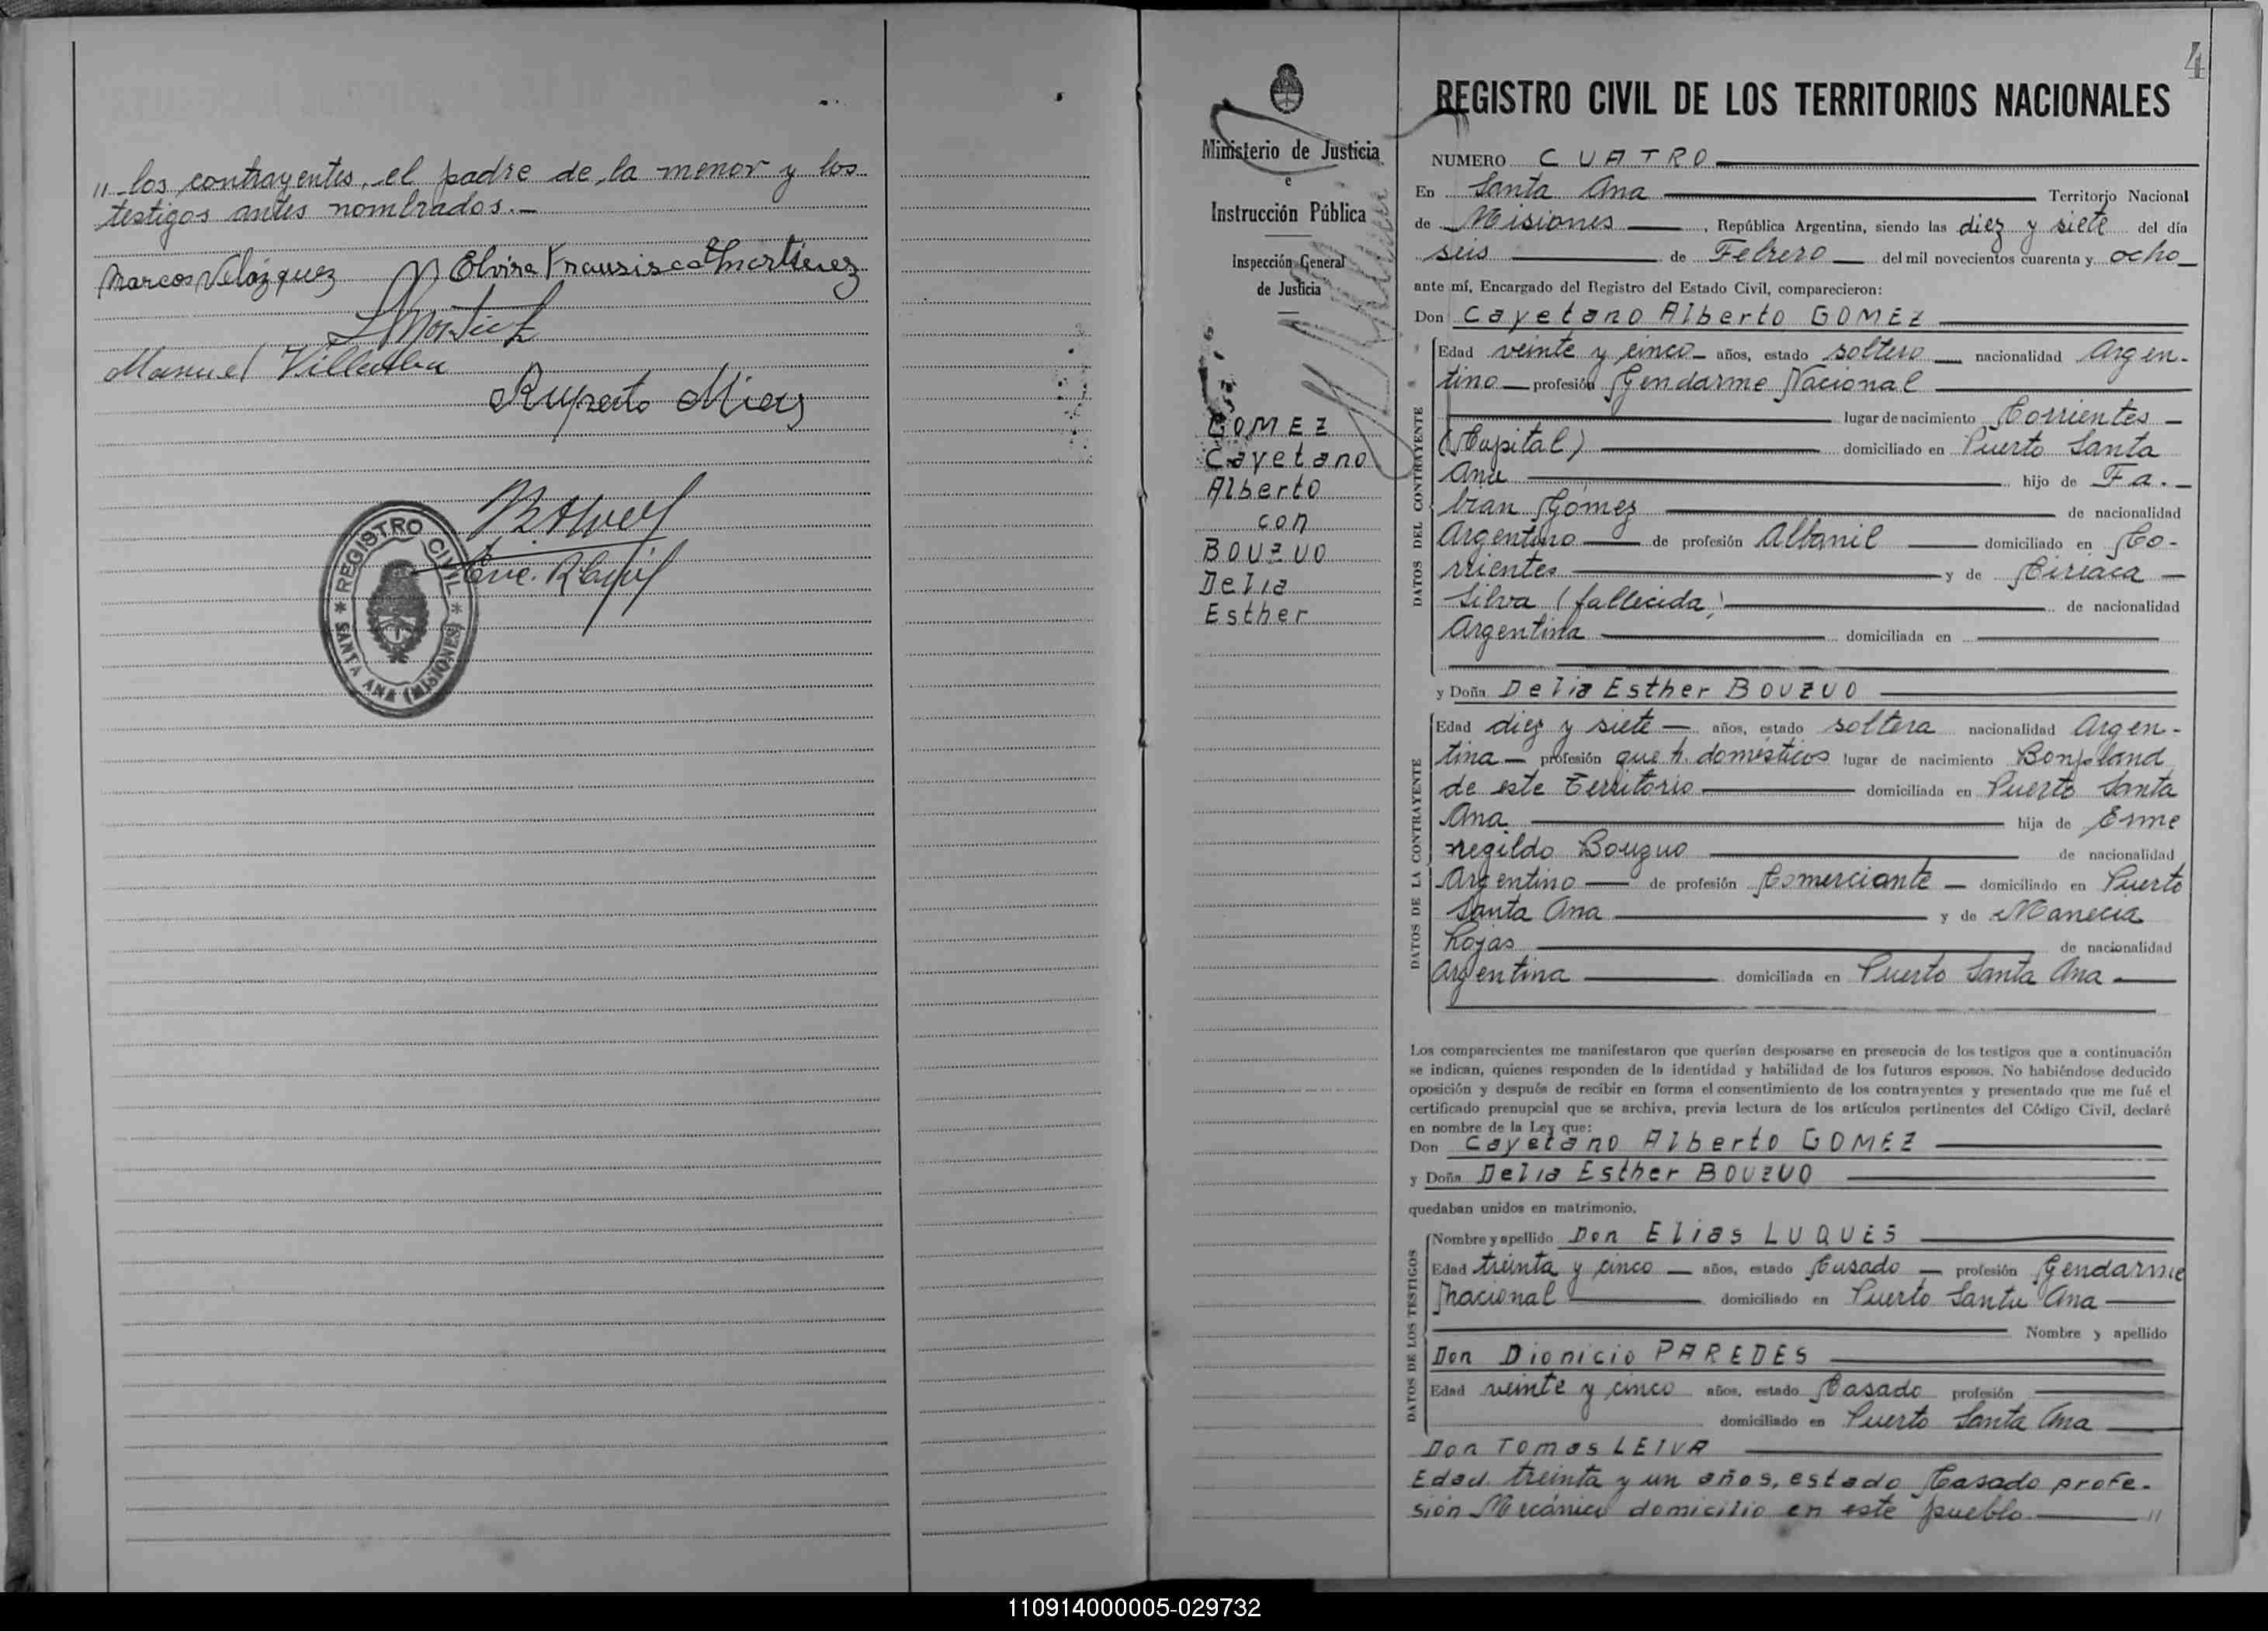 " los contrayentes, el padre de la menor y los
testigos antes nombrados.-
Marcos Velázquez
Elvira Fransisca Martinez
Manuel Villalba
Ruperto Mier
REGISTRO CIVIL
SANTA ANA (MISIONES)
Ministerio de Justicia
e
Instrucción Pública
Inspección General
de Justicia
GOMEZ
Cayetano
Alberto
con
BOUZUO
Delia
Esther
4
REGISTRO CIVIL DE LOS TERRITORIOS NACIONALES
NUMERO CUATRO
En Santa Ana Territorio Nacional
de Misiones, República Argentina, siendo las diez y siete del día
seis de Febrero del mil novecientos cuarenta y ocho
ante mí, Encargado del Registro del Estado Civil, comparecieron:
Don Cayetano Alberto GOMEZ
DATOS DEL CONTRAYENTE
Edad veinte y cinco años, estado soltero nacionalidad Argen-
tino profesión Gendarme Nacional
lugar de nacimiento Corrientes
(Capital) domiciliado en Puerto Santa
Ana hijo de Fa.
bian Gómez de nacionalidad
Argentino de profesión Albanil domiciliado en Co-
rrientes y de Ciriaca
Silva (fallecida) de nacionalidad
Argentina domiciliada en
y Doña Delia Esther BOUZUO
DATOS DE LA CONTRAYENTE
Edad diez y siete años, estado soltera nacionalidad Argen-
tina profesión que h. domésticos lugar de nacimiento Bonpland
de este Territorio domiciliada en Puerto Santa
Ana hija de Erme
negildo Bouzuo de nacionalidad
Argentino de profesión Comerciante domiciliado en Puerto
Santa Ana y de Manecia
Rojas de nacionalidad
Argentina domiciliada en Puerto Santa Ana
Los comparecientes me manifestaron que querían desposarse en presencia de los testigos que a continuación
se indican, quienes responden de la identidad y habilidad de los futuros esposos. No habiéndose deducido
oposición y después de recibir en forma el consentimiento de los contrayentes y presentado que me fué el
certificado prenupcial que se archiva, previa lectura de los artículos pertinentes del Código Civil, declaré
en nombre de la Ley que:
Don Cayetano Alberto GOMEZ
y Doña Delia Esther BOUZUO
quedaban unidos en matrimonio.
DATOS DE LOS TESTIGOS
Nombre y apellido Don Elias LUQUES
Edad treinta y cinco años, estado Casado profesión Gendarme
Nacional domiciliado en Puerto Santa Ana
Nombre y apellido
Don Dionicio PAREDES
Edad veinte y cinco años, estado Casado profesión
domiciliado en Puerto Santa Ana
Don Tomas LEIVA
Edad treinta y un años, estado Casado profe-
sión Mecánico domicilio en este pueblo "
110914000005-029732